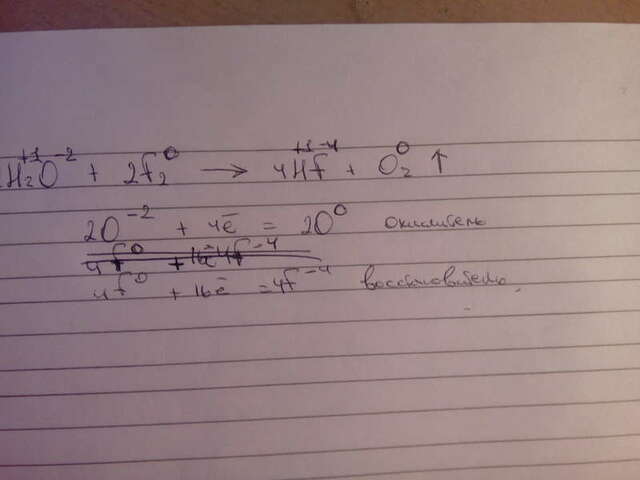 H₂⁺¹O⁻² + 2f₂⁰ → 4H⁺¹f⁻⁴ + O₂⁰ ↑
2O⁻² + 4ē = 2O⁰ окислитель
4f⁰ + 16ē 4f⁻⁴
4f⁰ + 16ē = 4f⁻⁴ восстановитель.